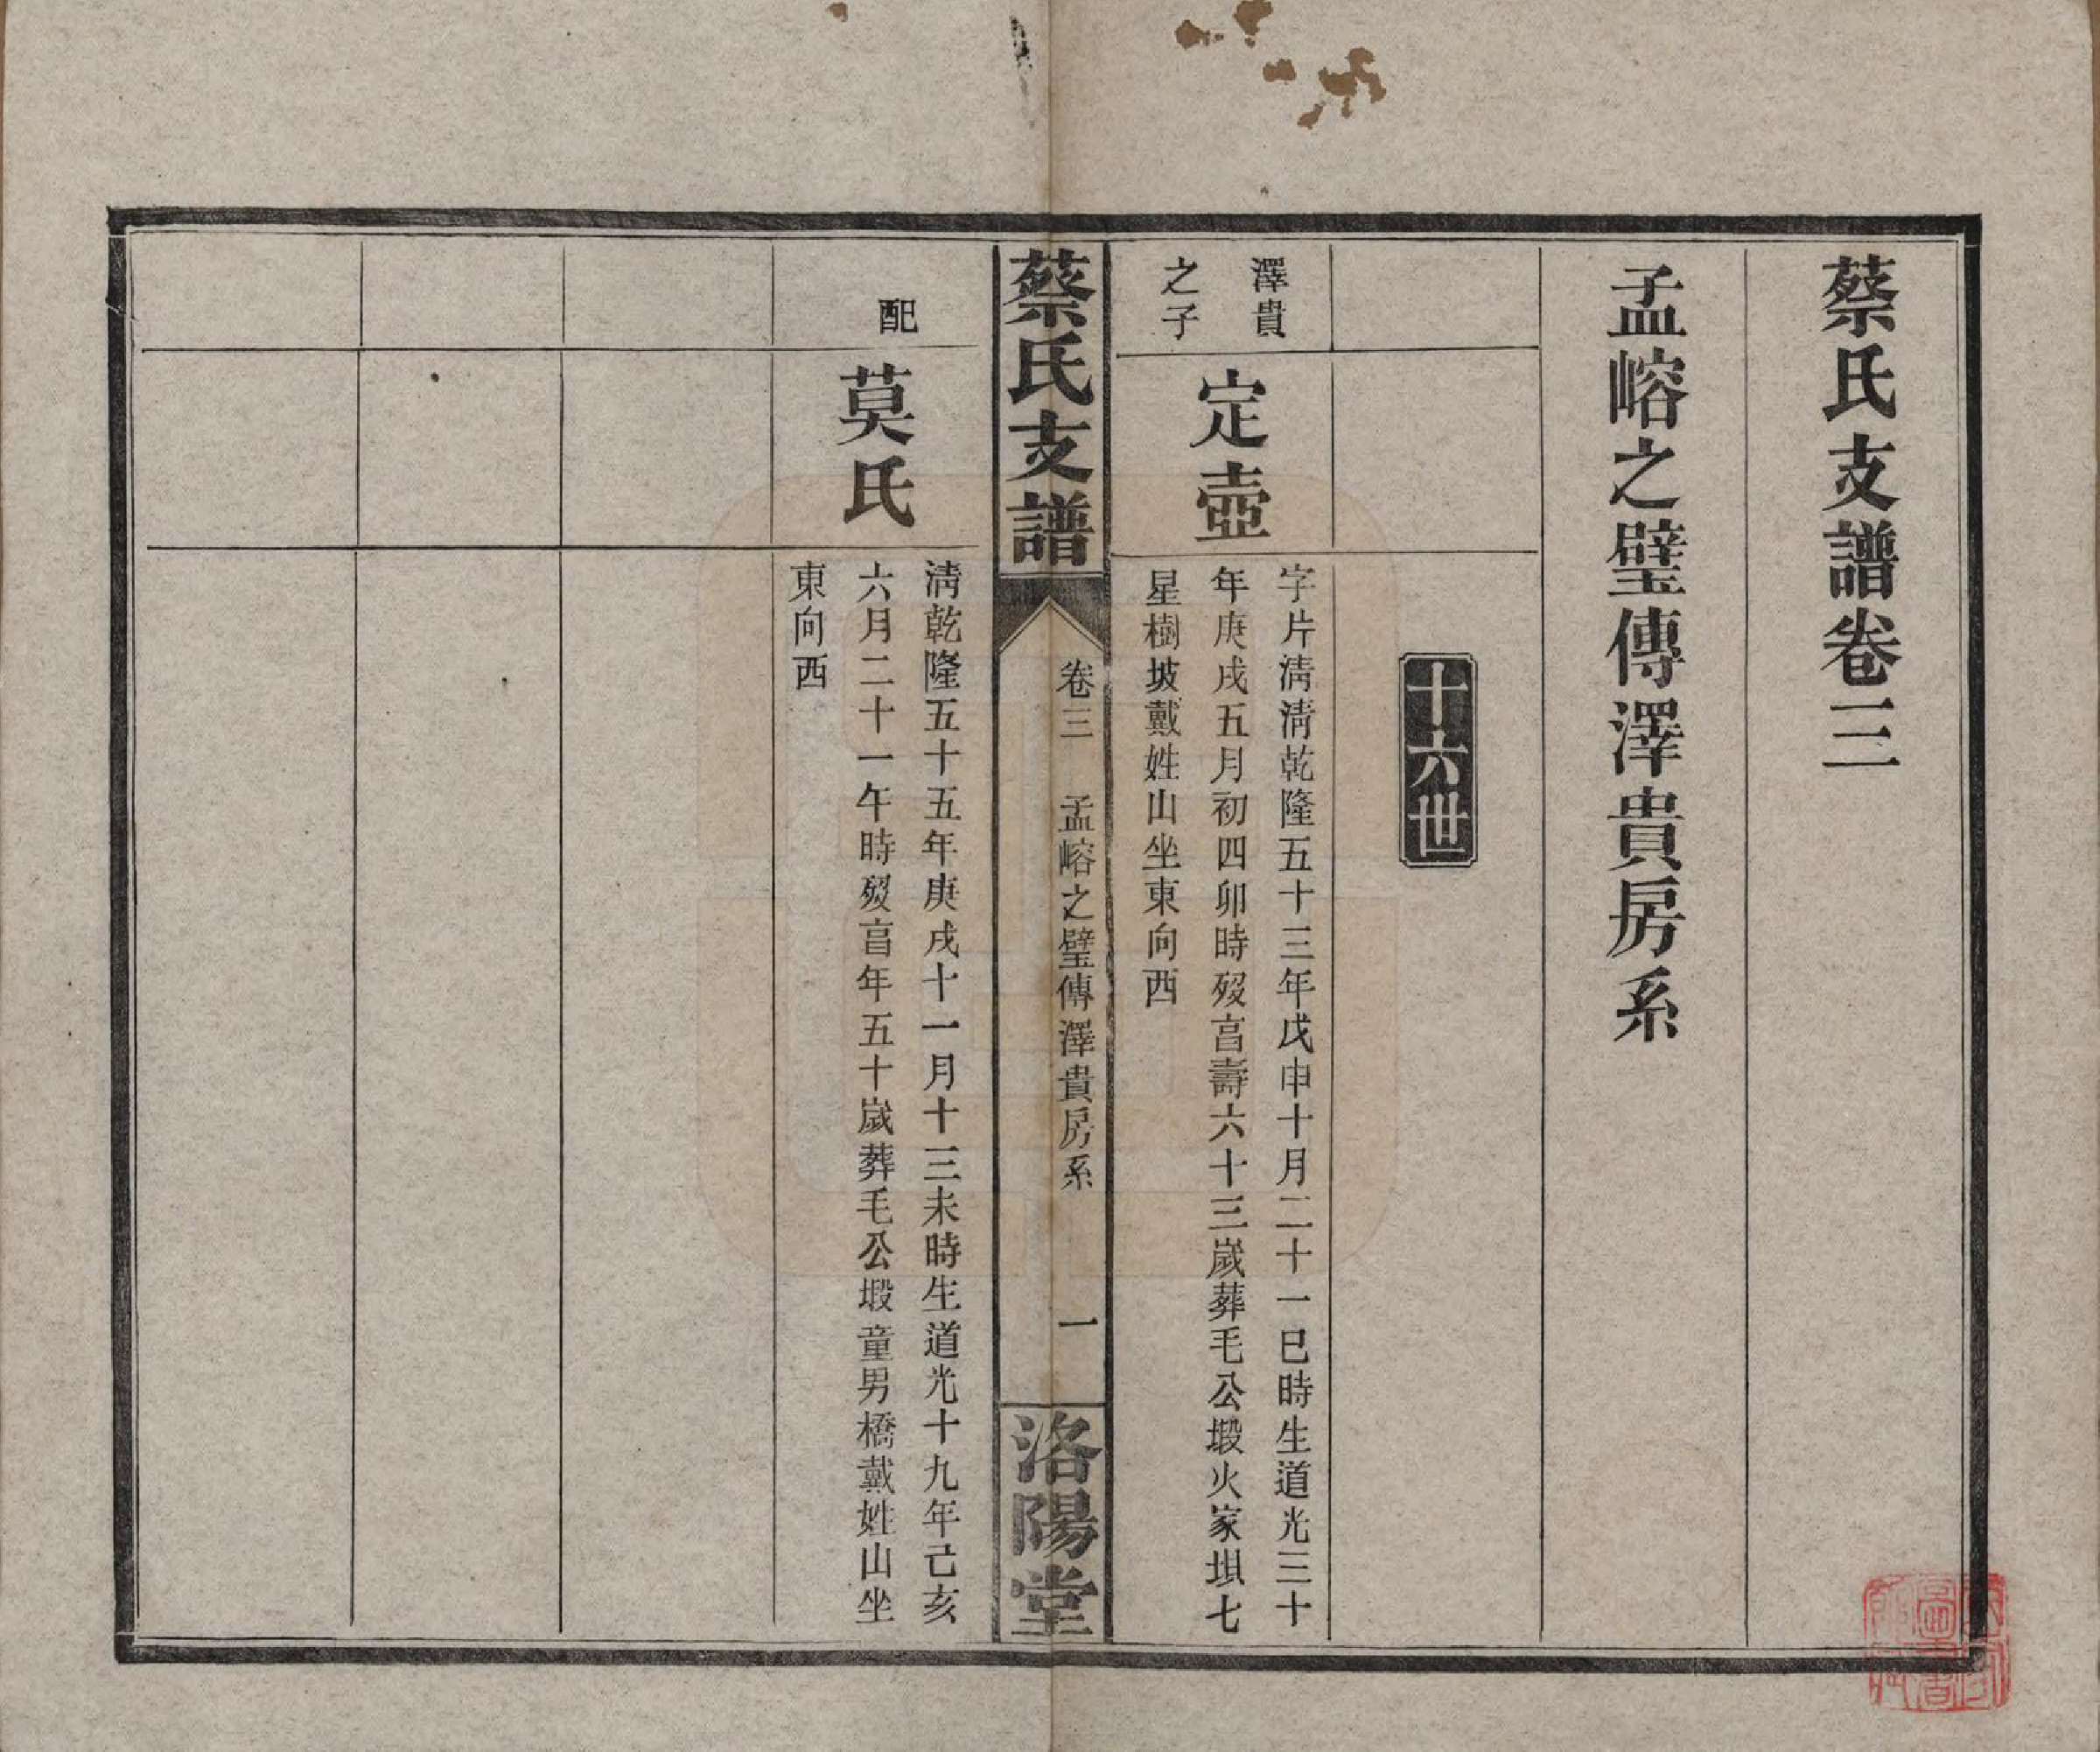 蔡氏支譜卷三
孟嵱之璧傳澤貴房系
十六世
澤貴
之子
定壺
字片淸淸乾隆五十三年戊申十月二十一巳時生道光三十
年庚戌五月初四卯時歿亯壽六十三歲葬毛公塅火家垻七
星樹坡戴姓山坐東向西
蔡氏支譜
卷三 孟嵱之璧傳澤貴房系 一
洛陽堂
配
莫氏
淸乾隆五十五年庚戌十一月十三未時生道光十九年己亥
六月二十一午時歿亯年五十歲葬毛公塅童男橋戴姓山坐
東向西